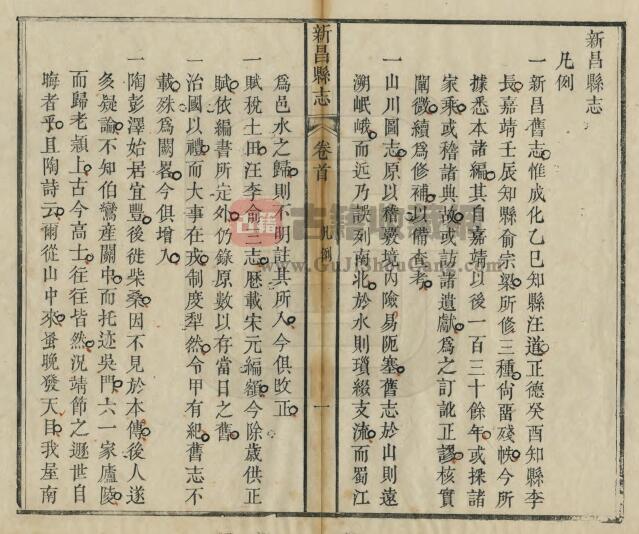 新昌縣志
凡例
一新昌舊志惟成化乙巳知縣汪道正德癸酉知縣李
長嘉靖壬辰知縣俞宗梁所修三種尙畱殘帙今所
據悉本諸編其自嘉靖以後一百三十餘年或採諸
家乘或稽諸典故或訪諸遺獻爲之訂訛正謬核實
闡微續爲修補以備查考
一山川圖志原以稽覈境內險易阨塞舊志於山則遠
溯岷峨而近乃誤列南北於水則瑣綴支流而蜀江
新昌縣志 卷首 凡例 一
爲邑水之歸則不明註其所入今俱改正
一賦稅土田汪李俞三志歷載宋元編額今除歲供正
賦依編書所定外仍錄原數以存當日之舊
一治國以禮而大事在戎制度犁然令甲有紀舊志不
載殊爲闕畧今俱增入
一陶彭澤始居宜豐後徙柴桑因不見於本傳後人遂
多疑論不知伯鸞產關中而托迹吳門六一家廬陵
而歸老潁上古今高士往往皆然況靖節之遯世自
晦者乎且陶詩云爾從山中來蚤晚發天目我屋南
古籍
古籍收藏网
www.GuJiShouCang.com